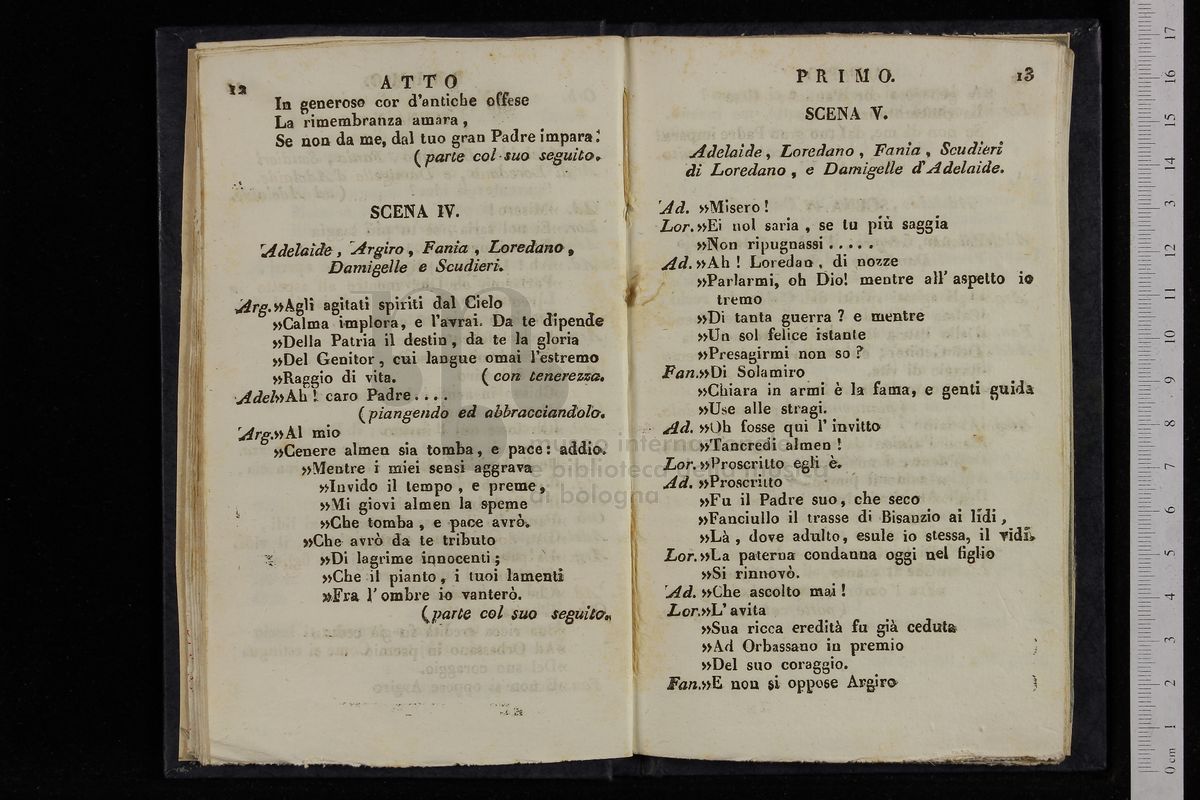 12
ATTO
In generoso cor d'antiche offese
La rimembranza amara,
Se non da me, dal tuo gran Padre impara!
(parte col suo seguito.
SCENA IV.
Adelaide, Argiro, Fania, Loredano,
Damigelle e Scudieri.
Arg.»Agli agitati spiriti dal Cielo
»Calma implora, e l'avrai. Da te dipende
»Della Patria il destin, da te la gloria
»Del Genitor, cui langue omai l'estremo
»Raggio di vita. (con tenerezza.
Adel»Ah! caro Padre....
(piangendo ed abbracciandolo.
Arg.»Al mio
»Cenere almen sia tomba, e pace: addio.
»Mentre i miei sensi aggrava
»Invido il tempo, e preme,
»Mi giovi almen la speme
»Che tomba, e pace avrò.
»Che avrò da te tributo
»Di lagrime innocenti;
»Che il pianto, i tuoi lamenti
»Fra l'ombre io vanterò.
(parte col suo seguito.
PRIMO.
13
SCENA V.
Adelaide, Loredano, Fania, Scudieri
di Loredano, e Damigelle d'Adelaide.
Ad. »Misero!
Lor.»Ei nol saria, se tu più saggia
»Non ripugnassi.....
Ad.»Ah! Loredan, di nozze
»Parlarmi, oh Dio! mentre all'aspetto io
tremo
»Di tanta guerra? e mentre
»Un sol felice istante
»Presagirmi non so?
Fan.»Di Solamiro
»Chiara in armi è la fama, e genti guida
»Use alle stragi.
Ad. »Oh fosse qui l'invitto
»Tancredi almen!
Lor.»Proscritto egli è.
Ad. »Proscritto
»Fu il Padre suo, che seco
»Fanciullo il trasse di Bisanzio ai lidi,
»Là, dove adulto, esule io stessa, il vidi.
Lor.»La paterna condanna oggi nel figlio
»Si rinnovò.
Ad. »Che ascolto mai!
Lor.»L'avita
»Sua ricca eredità fu già ceduta
»Ad Orbassano in premio
»Del suo coraggio.
Fan.»E non si oppose Argiro
museo internazionale
e biblioteca della musica
di bologna
0 cm 1 2 3 4 5 6 7 8 9 10 11 12 13 14 15 16 17